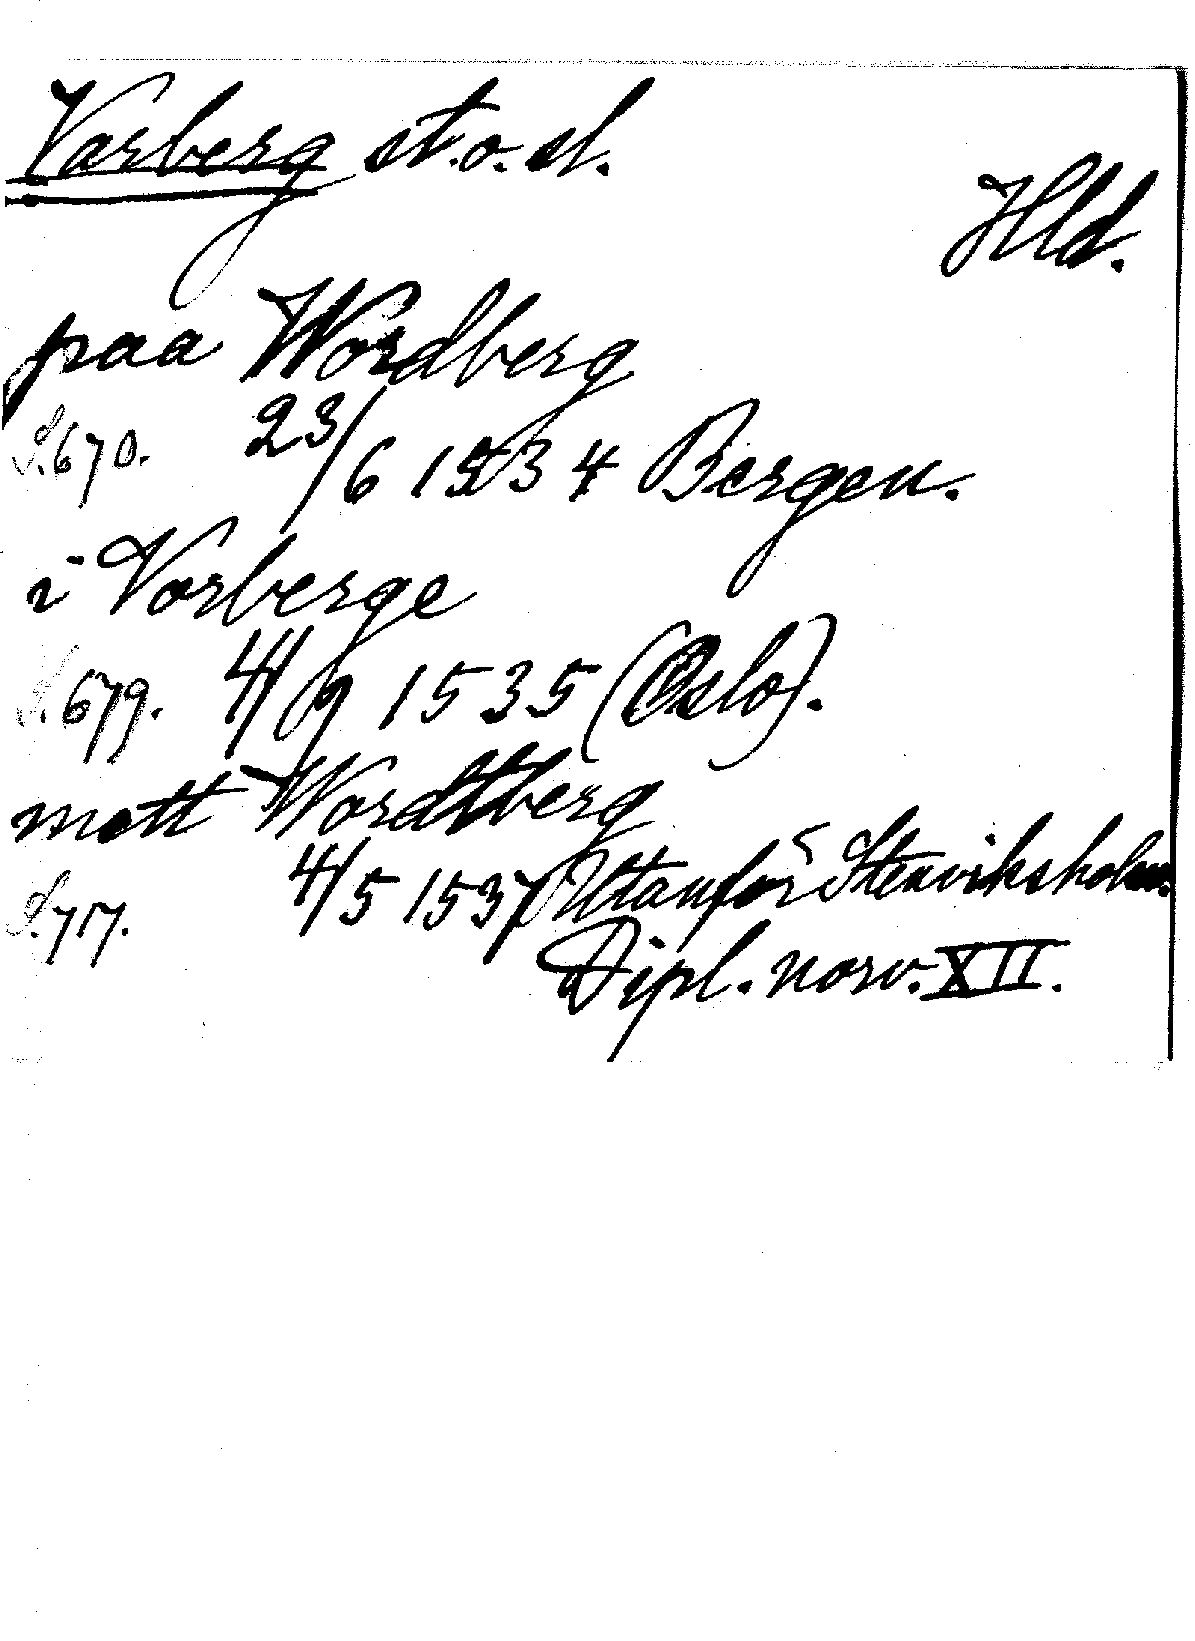 Varberg st. o. sl.
Hld.
paa Wordberg
S. 670. 23/6 1534 Bergen.
i Vorberge
S. 679. 4/9 1535 (Oslo).
mott Wordtberg
S. 717. 4/5 1537 Utanför Stenviksholm.
Dipl. norv. XII.